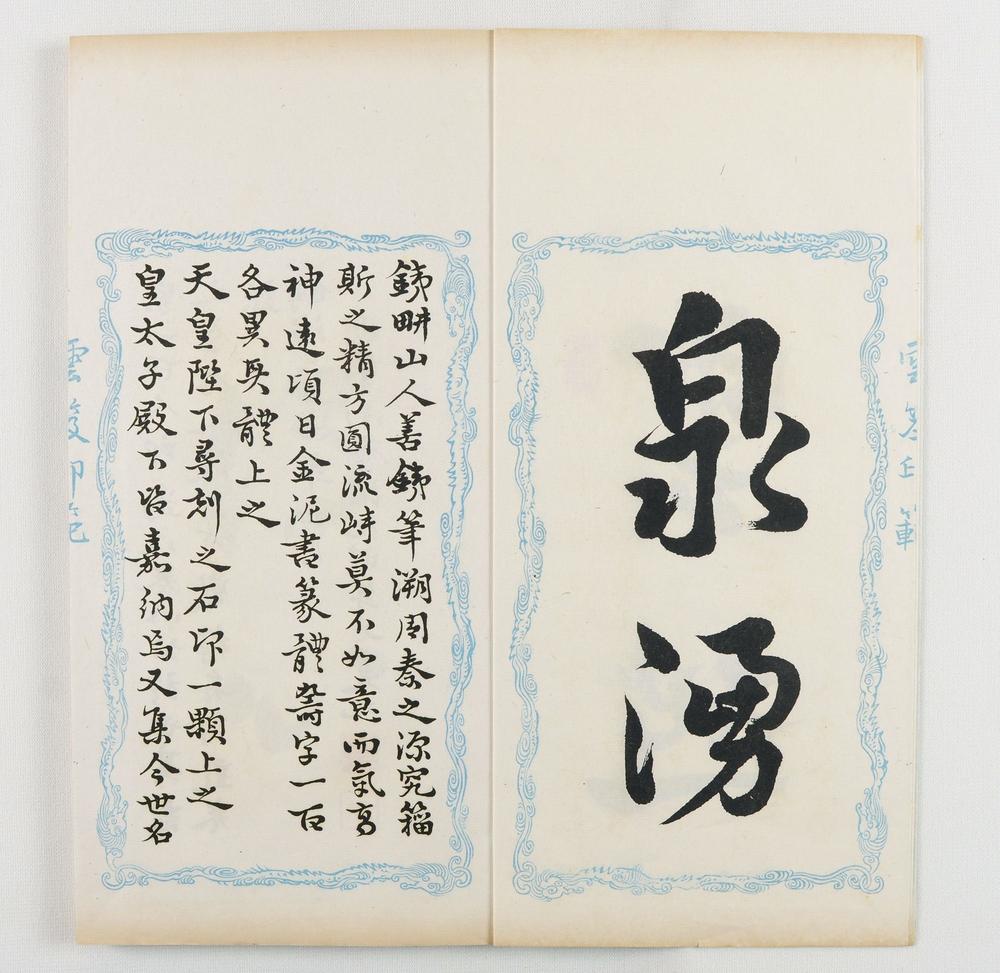 泉湧
銕畊山人善銕筆溯周秦之源究籀
斯之精方圓流峙莫不如意而氣高
神遠頃日金泥書篆體壽字一百
各異其體上之
天皇陛下尋刻之石印一顆上之
皇太子殿下皆嘉納焉又集今世名